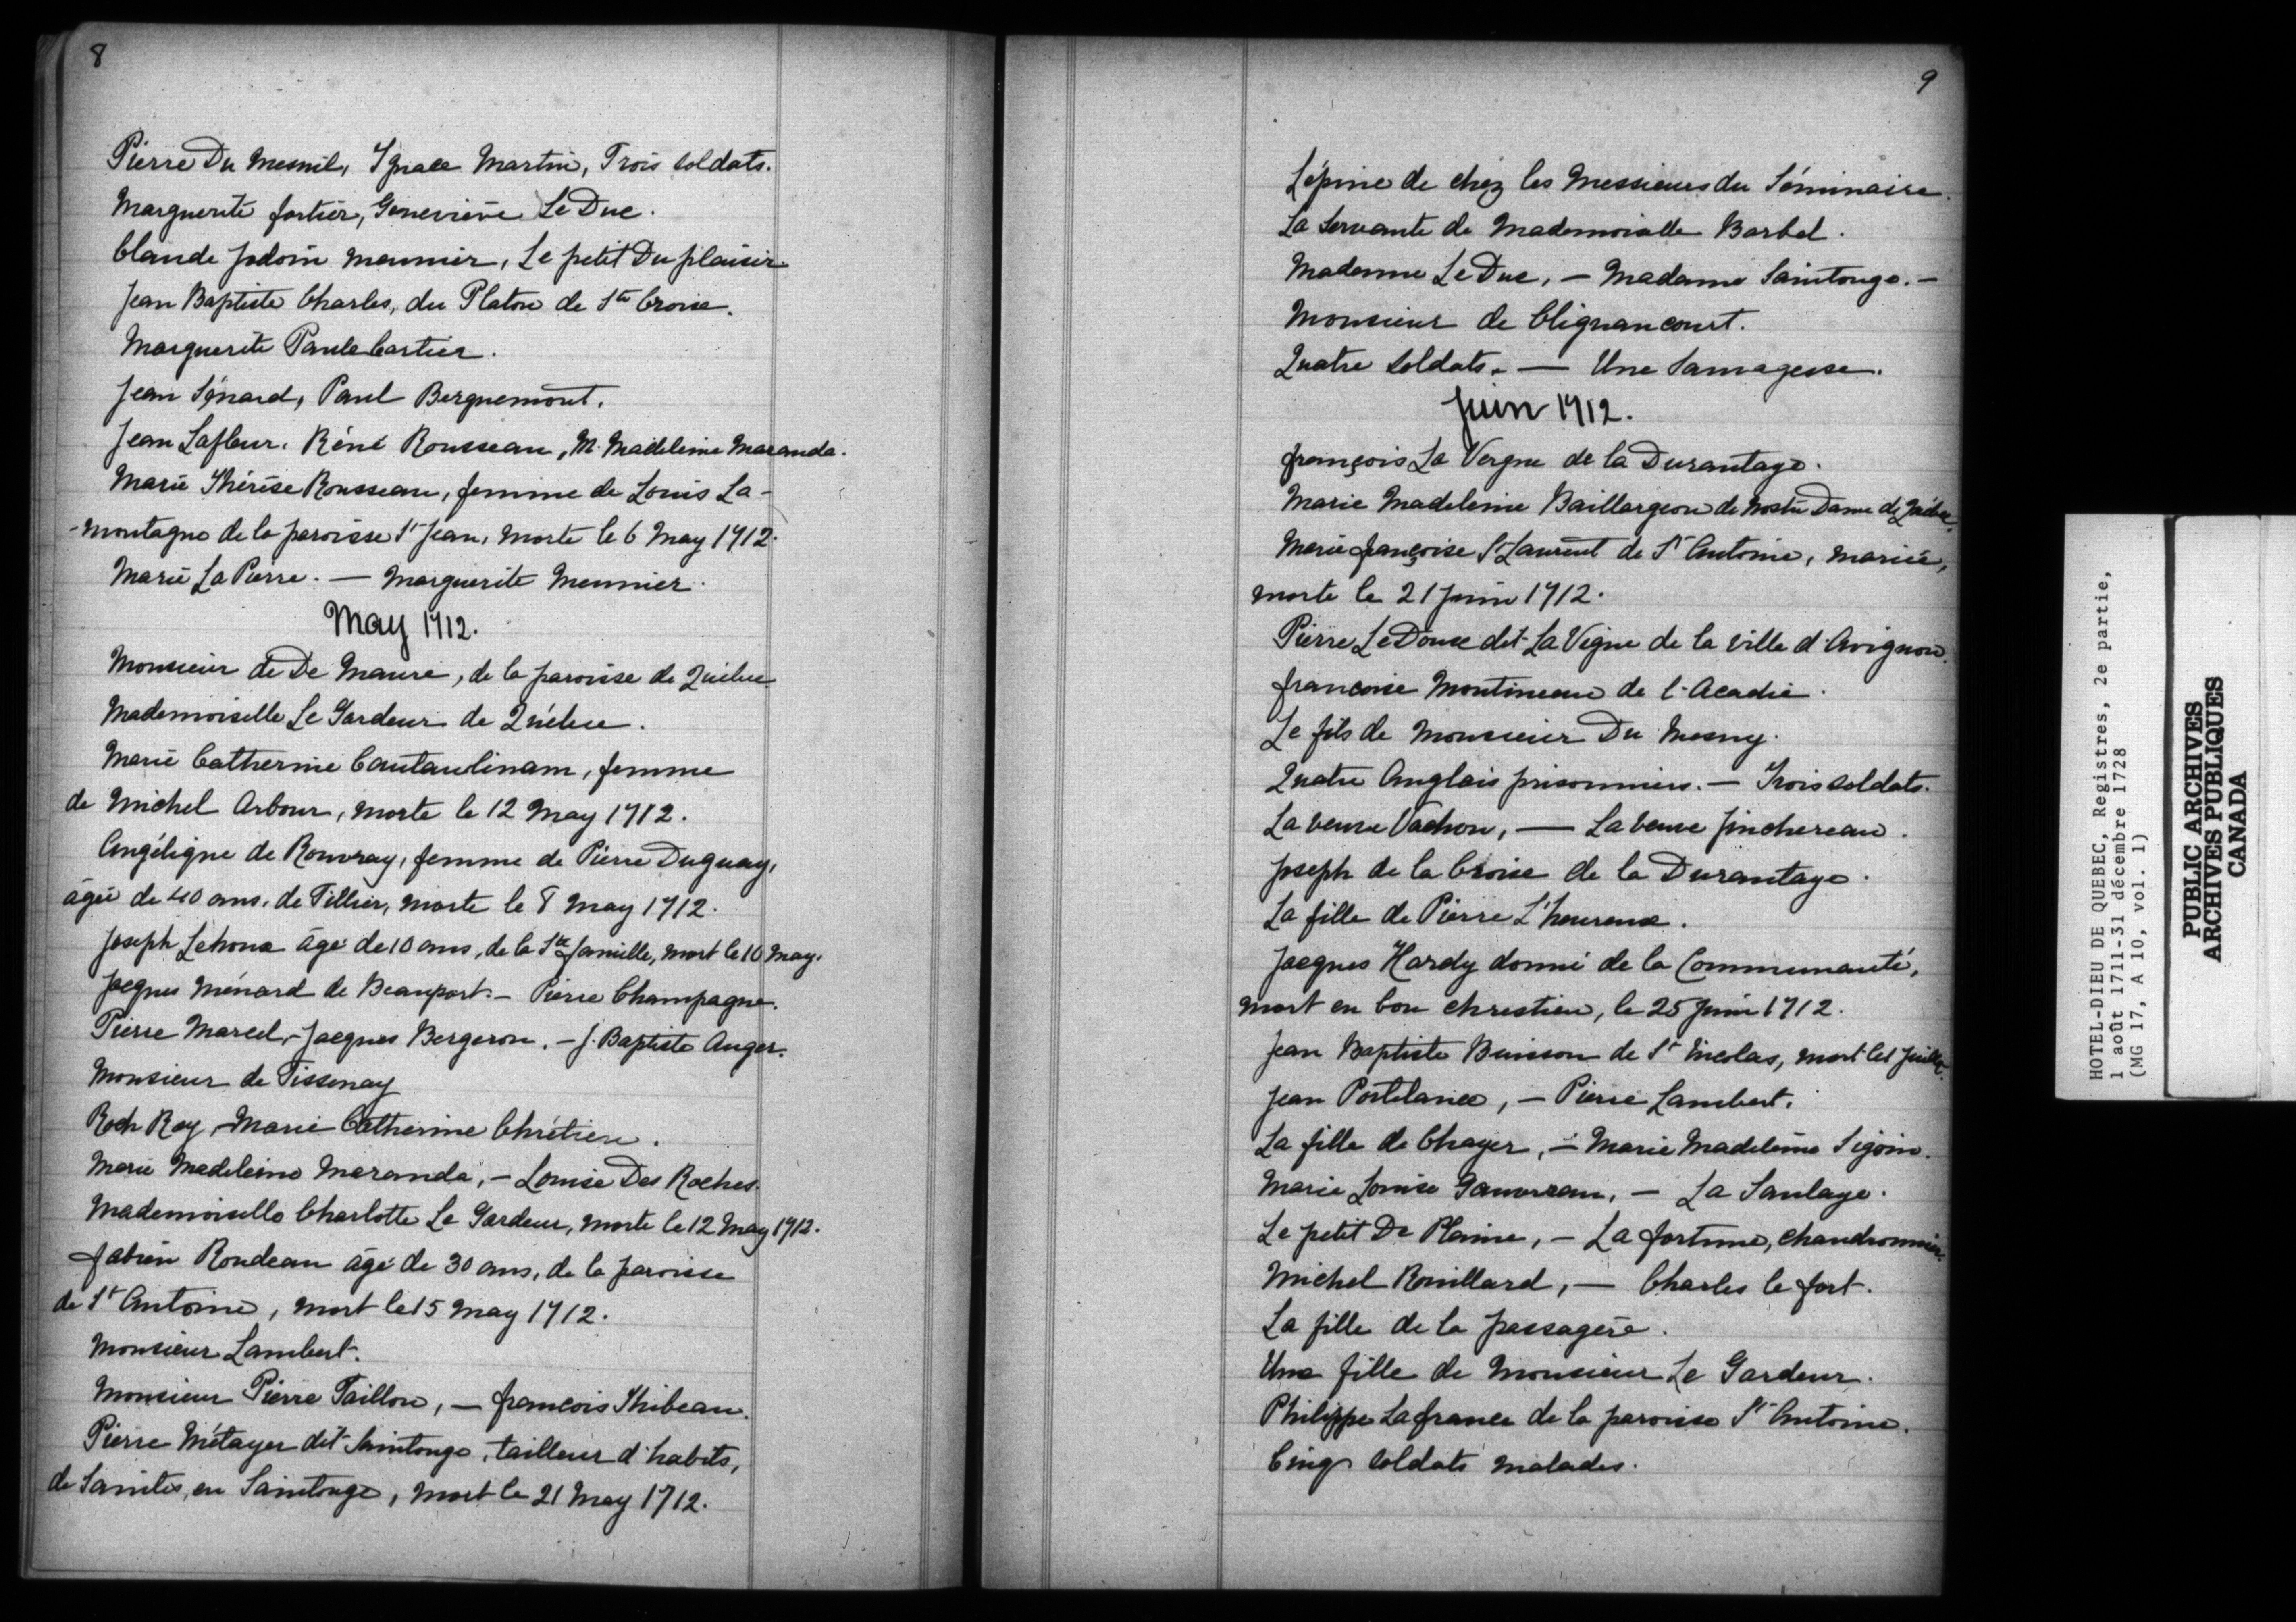 8
Pierre Du Mesnil, Ignace Martin, Trois soldats.
Marguerite fortier, Geneviève Le Duc.
Claude Jodoin meunier, Le petit Du plaisir
Jean Baptiste Charles, du Platon de Ste Croix.
Marguerite Paule Cartier.
Jean Sénard, Paul Berguemont.
Jean Lafleur. Réné Rousseau, M. Madeleine Maranda.
Marie Thérèse Rousseau, femme de Louis La-
-montagne de la paroisse St Jean, morte le 6 May 1712.
Marie La Pierre. — Marguerite Meunier.
May 1712.
Monsieur de De Maure, de la paroisse de Québec
Mademoiselle Le Gardeur de Québec.
Marie Catherine Cautaulinam, femme
de Michel Arbour, morte le 12 May 1712.
Angélique de Rouvray, femme de Pierre Duguay,
âgée de 40 ans, de Tillier, morte le 8 May 1712.
Joseph Lehoux âgé de 10 ans, de la Ste famille, mort le 10 May.
Jacques Ménard de Beauport. — Pierre Champagne.
Pierre Marcel, — Jacques Bergeron, — J. Baptiste Auger.
Monsieur de Tissenay
Roch Roy, — Marie Catherine Chrétien.
Marie Madeleine Maranda, — Louise Des Roches.
Mademoiselle Charlotte Le Gardeur, morte le 12 May 1712.
fabien Rondeau âgé de 30 ans, de la paroisse
de St Antoine, mort le 15 May 1712.
Monsieur Lambert.
Monsieur Pierre Taillon, — françois Thibeau.
Pierre Métayer dit Saintonge, tailleur d'habits,
de Saintes, en Saintonge, mort le 21 May 1712.
9
Lépine de chez les Messieurs du Séminaire.
La Servante de Mademoiselle Barbel.
Madame Le Duc, — Madame Saintonge. —
Monsieur de Clignancourt.
Quatre soldats. — Une Sauvagesse.
Juin 1712.
françois La Vergne de la Durantaye.
Marie Madeleine Baillargeon de Nostre Dame de Québec.
Marie françoise St Laurent de St Antoine, mariée,
morte le 21 Juin 1712.
Pierre Le Doux dit La Vigne de la ville d'Avignon.
francoise Montineau de l'Acadie.
Le fils de Monsieur Du Mesny.
Quatre Anglais prisonniers. — Trois soldats.
La veuve Vachon, — La veuve Jinchereau.
Joseph de la Croix de la Durantaye.
La fille de Pierre L'heureux.
Jacques Hardy donné de la Communauté,
mort en bon chrestien, le 25 Juin 1712.
Jean Baptiste Buisson de St Nicolas, mort le 1 Juillet.
Jean Portelance, — Pierre Lambert.
La fille de Chayer, — Marie Madeleine Sigoin.
Marie Louise Gauvreau, — La Saulaye.
Le petit De Plaine, — La fortune, chaudronnier.
Michel Rouillard, — Charles le fort.
La fille de la passagère.
Une fille de Monsieur Le Gardeur.
Philippe La france de la paroisse St Antoine.
Cinq soldats malades.
HOTEL-DIEU DE QUEBEC, Registres, 2e partie,
1 août 1711-31 décembre 1728
(MG 17, A 10, vol. 1)
PUBLIC ARCHIVES
ARCHIVES PUBLIQUES
CANADA